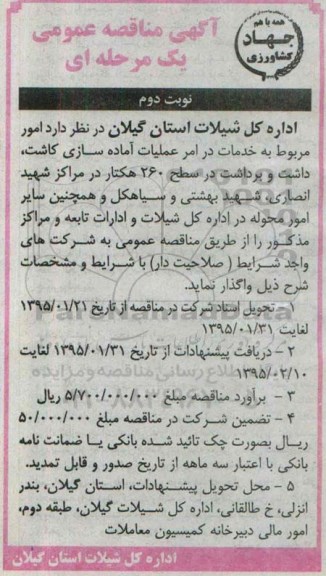 همه با هم
جهاد
کشاورزی
آگهی مناقصه عمومی
یک مرحله ای
نوبت دوم
اداره کل شیلات استان گیلان در نظر دارد امور
مربوط به خدمات در امر عملیات آماده سازی کاشت،
داشت و برداشت در سطح ۲۶۰ هکتار در مراکز شهید
انصاری، شهید بهشتی و سیاهکل و همچنین سایر
امور محوله در اداره کل شیلات و ادارات تابعه و مراکز
مذکور را از طریق مناقصه عمومی به شرکت های
واجد شرایط ( صلاحیت دار) با شرایط و مشخصات
شرح ذیل واگذار نماید.
۱- تحویل اسناد شرکت در مناقصه از تاریخ ۱۳۹۵/۰۱/۲۱
لغایت ۱۳۹۵/۰۱/۳۱
۲ - دریافت پیشنهادات از تاریخ ۱۳۹۵/۰۱/۳۱ لغایت
۱۳۹۵/۰۲/۱۰
۳ - برآورد مناقصه مبلغ ۵/۷۰۰/۰۰۰/۰۰۰ ریال
۴ - تضمین شرکت در مناقصه مبلغ ۵۰/۰۰۰/۰۰۰
ریال بصورت چک تائید شده بانکی یا ضمانت نامه
بانکی با اعتبار سه ماهه از تاریخ صدور و قابل تمدید.
۵ - محل تحویل پیشنهادات، استان گیلان، بندر
انزلی، خ طالقانی، اداره کل شیلات گیلان، طبقه دوم،
امور مالی دبیرخانه کمیسیون معاملات
اداره کل شیلات استان گیلان